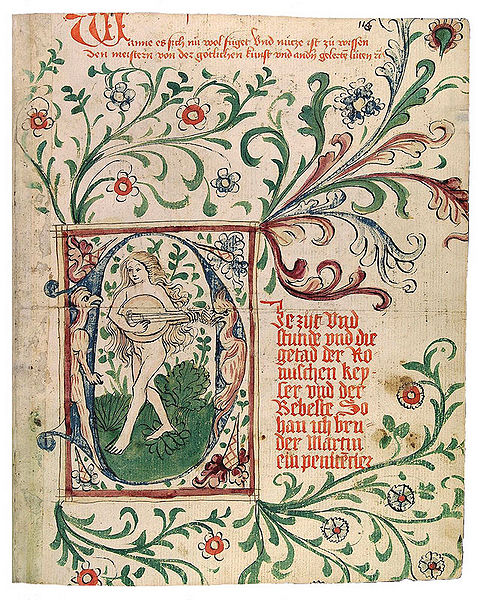 116
Wanne es sich nu wol füget Vnd nütze ist zů wissen
Den meistern von der götlichen kunst vnd andn gelerten lüten
Je zijt Vnd
stunde vnd die
getad der Ro
mischen key-
ser vnd der
Bebeste So
han ich bru
der Martin
ein penitēcier